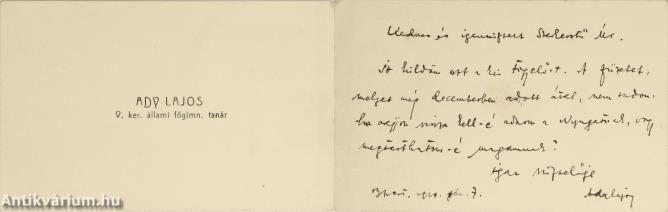 ADY LAJOS
V. ker. állami főgimn. tanár
Kedves és igen tisztelt Szerkesztő Úr.
Itt küldöm ezt a kis Függelőt. A füzetet,
melyet még decemberben adott által, nem tudom
vissza kell-é adnom a Nyugatnak, vagy
megtarthatom-é magamnak?
igaz tisztelője
7.
Ady Lajos
Antikvárium.hu
http://www.antikvarium.hu